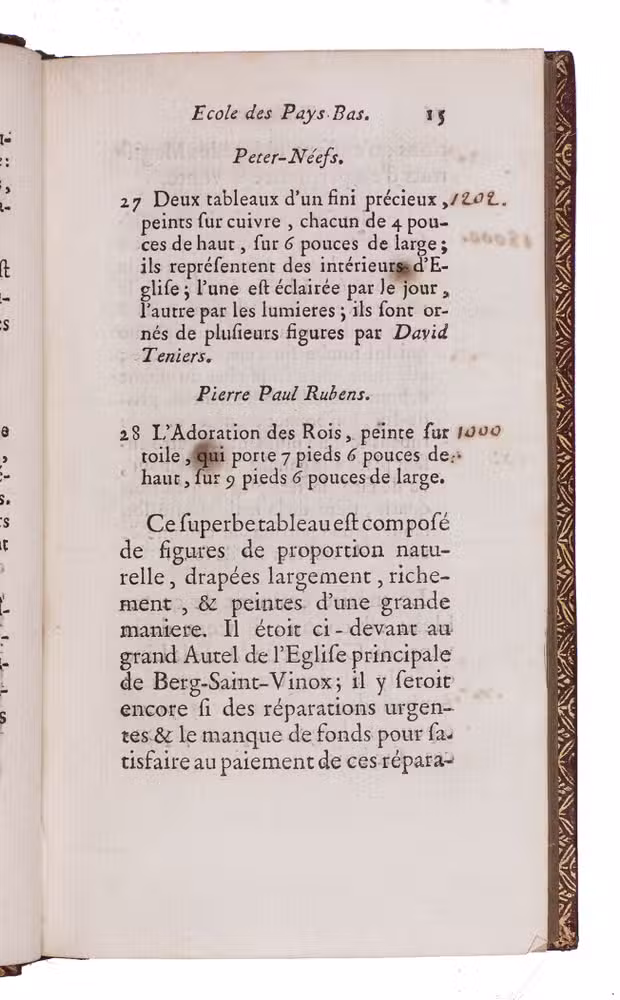 Ecole des Pays Bas. 15
Peter-Néefs.
27 Deux tableaux d'un fini précieux, 1202.
peints ſur cuivre, chacun de 4 pou-
ces de haut, ſur 6 pouces de large;
ils repréſentent des intérieurs d'E-
gliſe; l'une eſt éclairée par le jour,
l'autre par les lumieres; ils ſont or-
nés de pluſieurs figures par David
Teniers.
Pierre Paul Rubens.
28 L'Adoration des Rois, peinte ſur 1000
toile, qui porte 7 pieds 6 pouces de
haut, ſur 9 pieds 6 pouces de large.
Ce ſuperbe tableau eſt compoſé
de figures de proportion natu-
relle, drapées largement, riche-
ment, & peintes d'une grande
maniere. Il étoit ci-devant au
grand Autel de l'Egliſe principale
de Berg-Saint-Vinox; il y ſeroit
encore ſi des réparations urgen-
tes & le manque de fonds pour ſa-
tisfaire au paiement de ces répara-